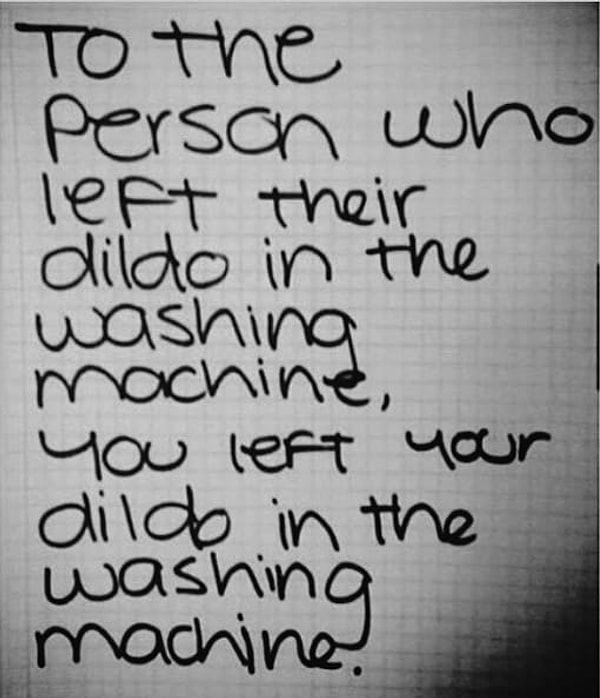 To the
person who
left their
dildo in the
washing
machine,
you left your
dildo in the
washing
machine.